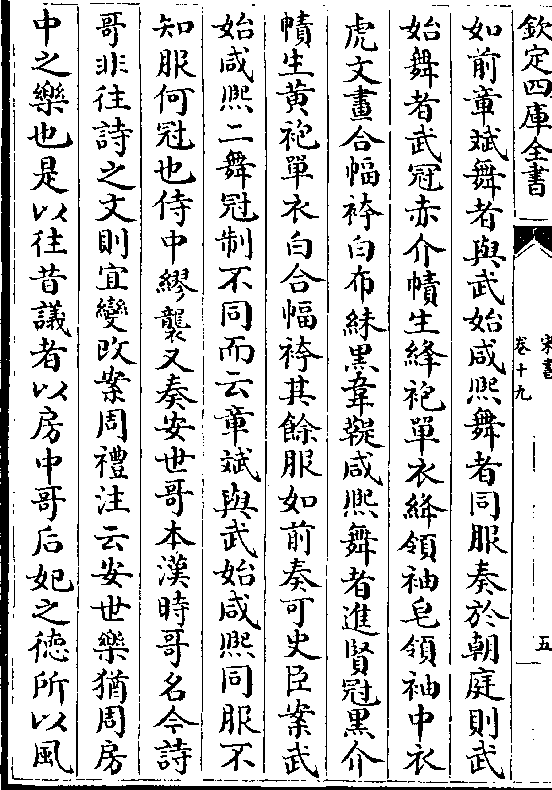 欽定四庫全書
宋書
卷十九
五
如前章斌舞者與武始咸熙舞者同服奏於朝庭則武
始舞者武冠赤介幘生絳袍單衣絳領袖皂領袖中衣
虎文畫合幅袴白布絉黑韋鞮咸熙舞者進賢冠黑介
幘生黄袍單衣白合幅袴其餘服如前奏可史臣案武
始咸熙二舞冠制不同而云章斌與武始咸熙同服不
知服何冠也侍中繆襲又奏安世哥本漢時哥名今詩
哥非往詩之文則宜變改案周禮注云安世樂猶周房
中之樂也是以往昔議者以房中哥后妃之德所以風